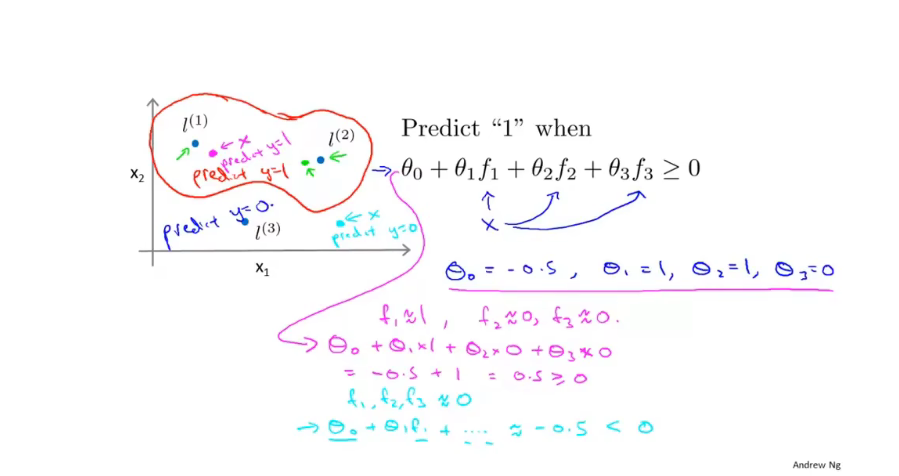 l^(1)
← x
predict y=1
l^(2)
predict y=1
x₂
predict y=0.
l^(3)
← x
predict y=0
x₁
Predict “1” when
→ θ₀ + θ₁f₁ + θ₂f₂ + θ₃f₃ ≥ 0
x
θ₀ = -0.5 , θ₁ = 1, θ₂ = 1, θ₃ = 0
f₁ ≈ 1 , f₂ ≈ 0, f₃ ≈ 0.
→ θ₀ + θ₁ × 1 + θ₂ × 0 + θ₃ × 0
= -0.5 + 1 = 0.5 ≥ 0
f₁, f₂, f₃ ≈ 0
→ θ₀ + θ₁f₁ + .... ≈ -0.5 < 0
Andrew Ng